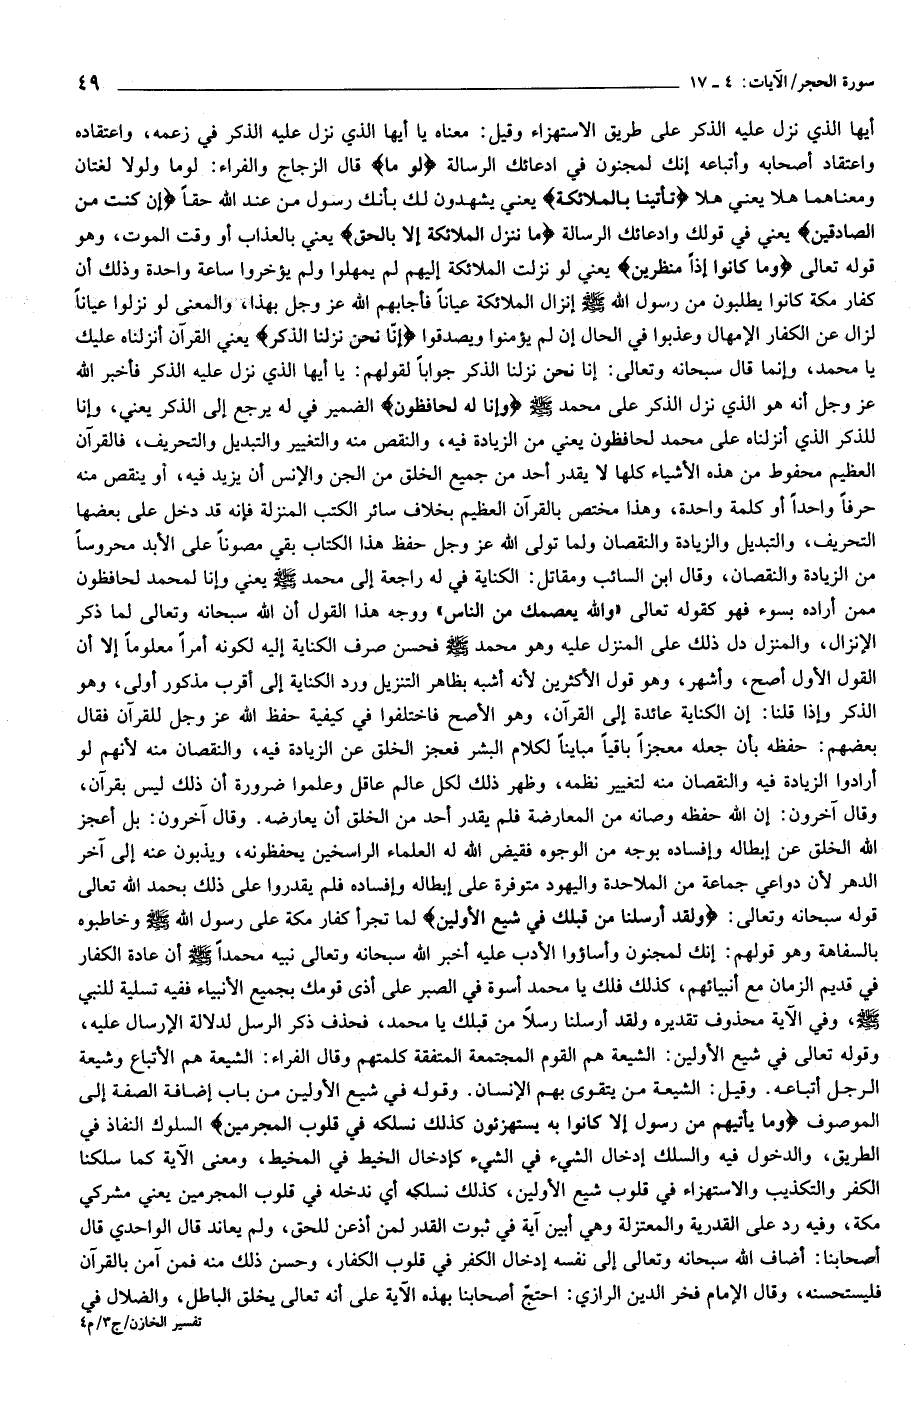 سورة الحجر/ الآيات: ٤ ـ ١٧ ٤٩
أيها الذي نزل عليه الذكر على طريق الاستهزاء وقيل: معناه يا أيها الذي نزل عليه الذكر في زعمه، واعتقاده
واعتقاد أصحابه وأتباعه إنك لمجنون في ادعائك الرسالة ﴿لو ما﴾ قال الزجاج والفراء: لوما ولولا لغتان
ومعناهما هلا يعني هلا ﴿تأتينا بالملائكة﴾ يعني يشهدون لك بأنك رسول من عند الله حقاً ﴿إن كنت من
الصادقين﴾ يعني في قولك وادعائك الرسالة ﴿ما ننزل الملائكة إلا بالحق﴾ يعني بالعذاب أو وقت الموت، وهو
قوله تعالى ﴿وما كانوا إذاً منظرين﴾ يعني لو نزلت الملائكة إليهم لم يمهلوا ولم يؤخروا ساعة واحدة وذلك أن
كفار مكة كانوا يطلبون من رسول الله ﷺ إنزال الملائكة عياناً فأجابهم الله عز وجل بهذا، والمعنى لو نزلوا عياناً
لزال عن الكفار الإمهال وعذبوا في الحال إن لم يؤمنوا ويصدقوا ﴿إنّا نحن نزلنا الذكر﴾ يعني القرآن أنزلناه عليك
يا محمد، وإنما قال سبحانه وتعالى: إنا نحن نزلنا الذكر جواباً لقولهم: يا أيها الذي نزل عليه الذكر فأخبر الله
عز وجل أنه هو الذي نزل الذكر على محمد ﷺ ﴿وإنا له لحافظون﴾ الضمير في له يرجع إلى الذكر يعني، وإنا
للذكر الذي أنزلناه على محمد لحافظون يعني من الزيادة فيه، والنقص منه والتغيير والتبديل والتحريف، فالقرآن
العظيم محفوظ من هذه الأشياء كلها لا يقدر أحد من جميع الخلق من الجن والإنس أن يزيد فيه، أو ينقص منه
حرفاً واحداً أو كلمة واحدة، وهذا مختص بالقرآن العظيم بخلاف سائر الكتب المنزلة فإنه قد دخل على بعضها
التحريف، والتبديل والزيادة والنقصان ولما تولى الله عز وجل حفظ هذا الكتاب بقي مصوناً على الأبد محروساً
من الزيادة والنقصان، وقال ابن السائب ومقاتل: الكناية في له راجعة إلى محمد ﷺ يعني وإنا لمحمد لحافظون
ممن أراده بسوء فهو كقوله تعالى «والله يعصمك من الناس» ووجه هذا القول أن الله سبحانه وتعالى لما ذكر
الإنزال، والمنزل دل ذلك على المنزل عليه وهو محمد ﷺ فحسن صرف الكناية إليه لكونه أمراً معلوماً إلا أن
القول الأول أصح، وأشهر، وهو قول الأكثرين لأنه أشبه بظاهر التنزيل ورد الكناية إلى أقرب مذكور أولى، وهو
الذكر وإذا قلنا: إن الكناية عائدة إلى القرآن، وهو الأصح فاختلفوا في كيفية حفظ الله عز وجل للقرآن فقال
بعضهم: حفظه بأن جعله معجزاً باقياً مبايناً لكلام البشر فعجز الخلق عن الزيادة فيه، والنقصان منه لأنهم لو
أرادوا الزيادة فيه والنقصان منه لتغيير نظمه، وظهر ذلك لكل عالم عاقل وعلموا ضرورة أن ذلك ليس بقرآن،
وقال آخرون: إن الله حفظه وصانه من المعارضة فلم يقدر أحد من الخلق أن يعارضه. وقال آخرون: بل أعجز
الله الخلق عن إبطاله وإفساده بوجه من الوجوه فقيض الله له العلماء الراسخين يحفظونه، ويذبون عنه إلى آخر
الدهر لأن دواعي جماعة من الملاحدة واليهود متوفرة على إبطاله وإفساده فلم يقدروا على ذلك بحمد الله تعالى
قوله سبحانه وتعالى: ﴿ولقد أرسلنا من قبلك في شيع الأولين﴾ لما تجرأ كفار مكة على رسول الله ﷺ وخاطبوه
بالسفاهة وهو قولهم: إنك لمجنون وأساؤوا الأدب عليه أخبر الله سبحانه وتعالى نبيه محمداً ﷺ أن عادة الكفار
في قديم الزمان مع أنبيائهم، كذلك فلك يا محمد أسوة في الصبر على أذى قومك بجميع الأنبياء ففيه تسلية للنبي
ﷺ، وفي الآية محذوف تقديره ولقد أرسلنا رسلاً من قبلك يا محمد، فحذف ذكر الرسل لدلالة الإرسال عليه،
وقوله تعالى في شيع الأولين: الشيعة هم القوم المجتمعة المتفقة كلمتهم وقال الفراء: الشيعة هم الأتباع وشيعة
الرجل أتباعه. وقيل: الشيعة من يتقوى بهم الإنسان. وقوله في شيع الأولين من باب إضافة الصفة إلى
الموصوف ﴿وما يأتيهم من رسول إلا كانوا به يستهزئون كذلك نسلكه في قلوب المجرمين﴾ السلوك النفاذ في
الطريق، والدخول فيه والسلك إدخال الشيء في الشيء كإدخال الخيط في المخيط، ومعنى الآية كما سلكنا
الكفر والتكذيب والاستهزاء في قلوب شيع الأولين، كذلك نسلكه أي ندخله في قلوب المجرمين يعني مشركي
مكة، وفيه رد على القدرية والمعتزلة وهي أبين آية في ثبوت القدر لمن أذعن للحق، ولم يعاند قال الواحدي قال
أصحابنا: أضاف الله سبحانه وتعالى إلى نفسه إدخال الكفر في قلوب الكفار، وحسن ذلك منه فمن آمن بالقرآن
فليستحسنه، وقال الإمام فخر الدين الرازي: احتجّ أصحابنا بهذه الآية على أنه تعالى يخلق الباطل، والضلال في
تفسير الخازن/ج٣/م٤